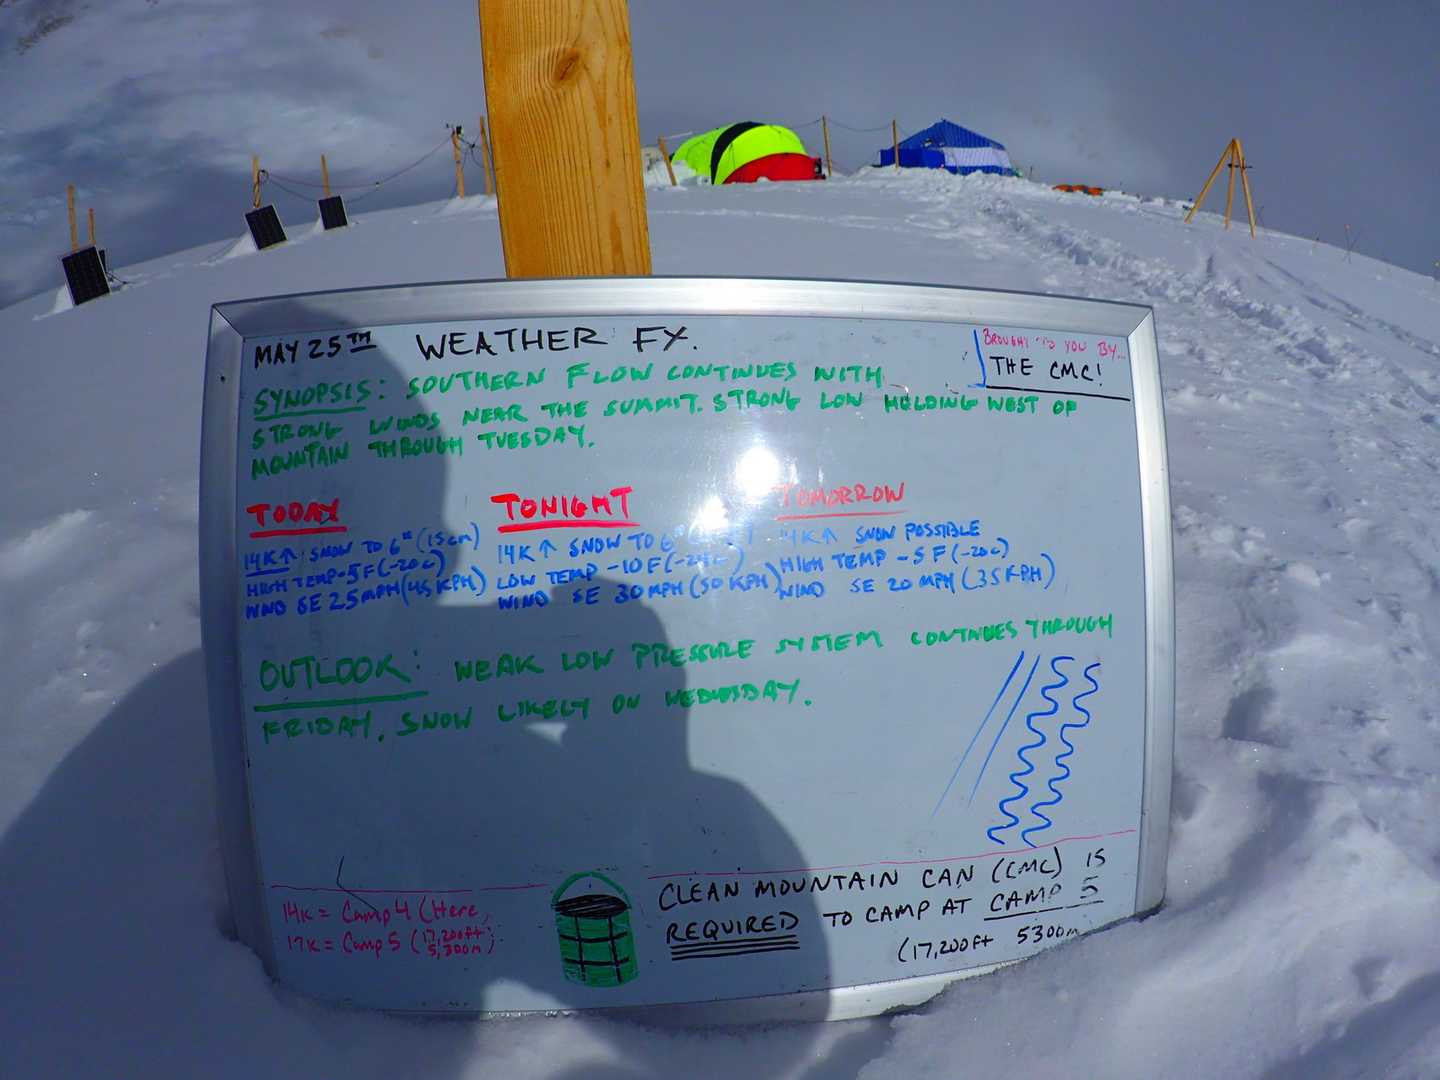 MAY 25TH WEATHER FX.
BROUGHT TO YOU BY...
THE CMC!
SYNOPSIS: SOUTHERN FLOW CONTINUES WITH
STRONG WINDS NEAR THE SUMMIT. STRONG LOW HOLDING WEST OF
MOUNTAIN THROUGH TUESDAY.
TODAY
14K↑ SNOW TO 6" (15cm)
HIGH TEMP -5F (-20C)
WIND SE 25MPH (45KPH)
TONIGHT
14K↑ SNOW TO 6"
LOW TEMP -10F
WIND SE 30MPH (50KPH)
TOMORROW
14K↑ SNOW POSSIBLE
HIGH TEMP -5F (-20C)
WIND SE 20MPH (35KPH)
OUTLOOK: WEAK LOW PRESSURE SYSTEM CONTINUES THROUGH
FRIDAY. SNOW LIKELY ON WEDNESDAY.
14K = Camp 4 (Here)
17K = Camp 5 (17,200ft;
5,300m)
CLEAN MOUNTAIN CAN (CMC) IS
REQUIRED TO CAMP AT CAMP 5
(17,200ft 5300m